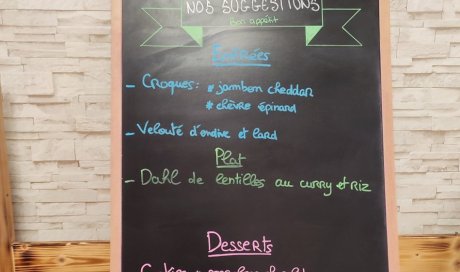 NOS SUGGESTIONS
Bon appétit
Entrées
- Croques : * jambon cheddar
* chèvre épinard
- Velouté d'endive et lard
Plat
- Dahl de lentilles au curry et riz
Desserts